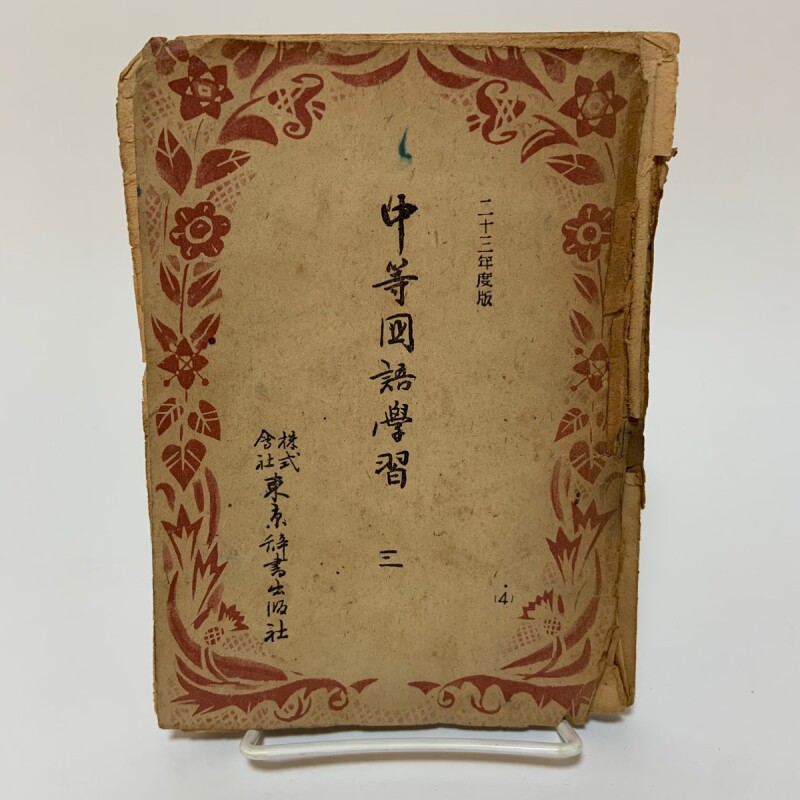 二十三年度版
中等国語學習 三
株式會社 東京辞書出版社
(4)